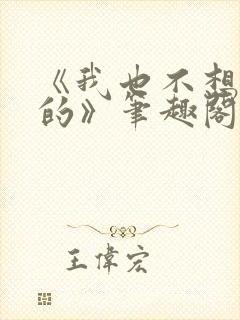 《我也不想
的》笔趣阁
王偉宏